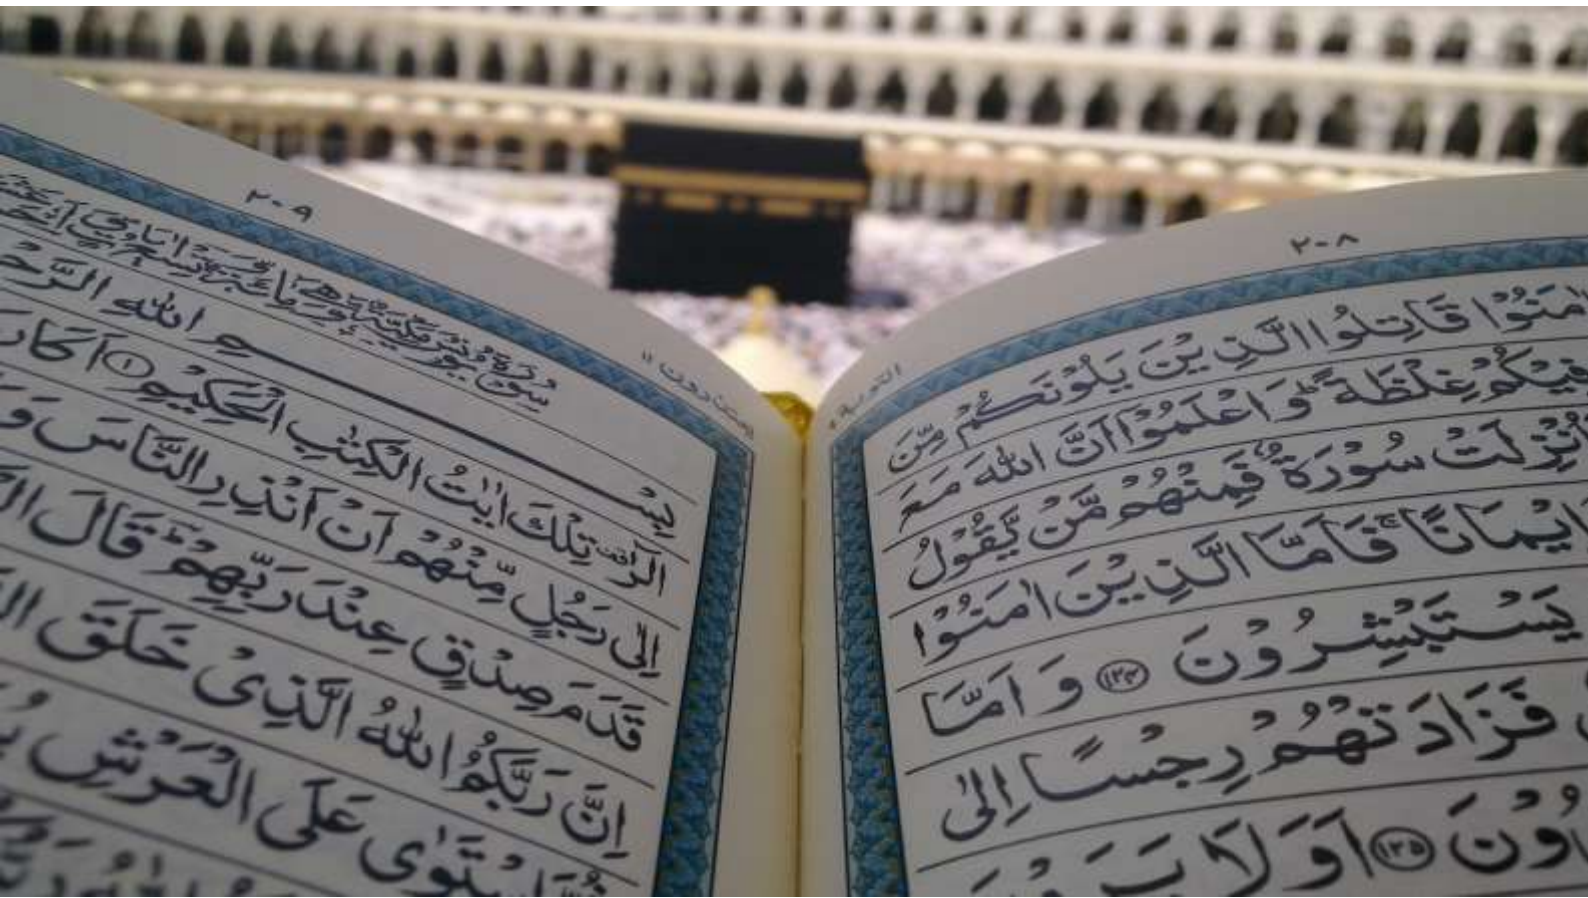 ٢٠٨
التوبة ٩
اٰمَنُوْا قَاتِلُوا الَّذِيْنَ يَلُوْنَكُمْ مِّنَ
فِيْكُمْ غِلْظَةً ؕ وَاعْلَمُوْۤا اَنَّ اللّٰهَ مَعَ
اُنْزِلَتْ سُوْرَةٌ فَمِنْهُمْ مَّنْ يَّقُوْلُ
اِيْمَانًا ۚ فَاَمَّا الَّذِيْنَ اٰمَنُوْا
يَسْتَبْشِرُوْنَ ﴿١٢٤﴾ وَ اَمَّا
فَزَادَتْهُمْ رِجْسًا اِلٰى
﴿١٢٥﴾ اَوَ لَا يَرَوْنَ
٢٠٩
يعتذرون ١١
سُوْرَةُ يُوْنُسَ مَكِّيَّةٌ وَّهِيَ مِائَةٌ وَّتِسْعُ اٰيَاتٍ
بِسْمِ اللّٰهِ
الٓرٰ ۫ تِلْكَ اٰيٰتُ الْكِتٰبِ الْحَكِيْمِ ﴿١﴾ اَكَانَ
اِلٰى رَجُلٍ مِّنْهُمْ اَنْ اَنْذِرِ النَّاسَ وَ
قَدَمَ صِدْقٍ عِنْدَ رَبِّهِمْ ؕ قَالَ
اِنَّ رَبَّكُمُ اللّٰهُ الَّذِيْ خَلَقَ
ثُمَّ اسْتَوٰى عَلَى الْعَرْشِ